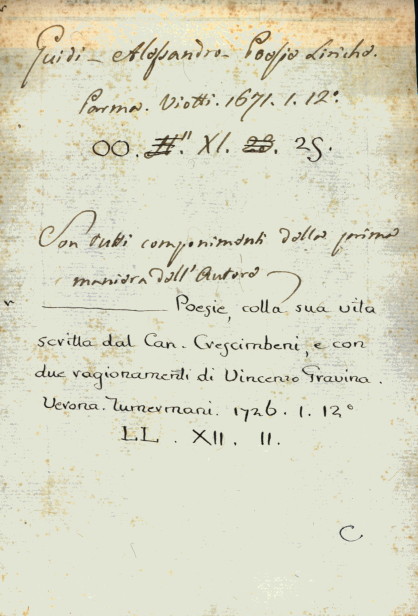 Guidi - Alessandro - Poesie Liriche.
Parma. Viotti. 1671. 1. 12°.
OO. XI. 25.
Son tutti componimenti della prima
maniera dell'Autore
Poesie, colla sua vita
scritta dal Can. Crescimbeni, e con
due ragionamenti di Vincenzo Gravina.
Verona. Tumermani. 1726. 1. 12°
LL. XII. 11.
C